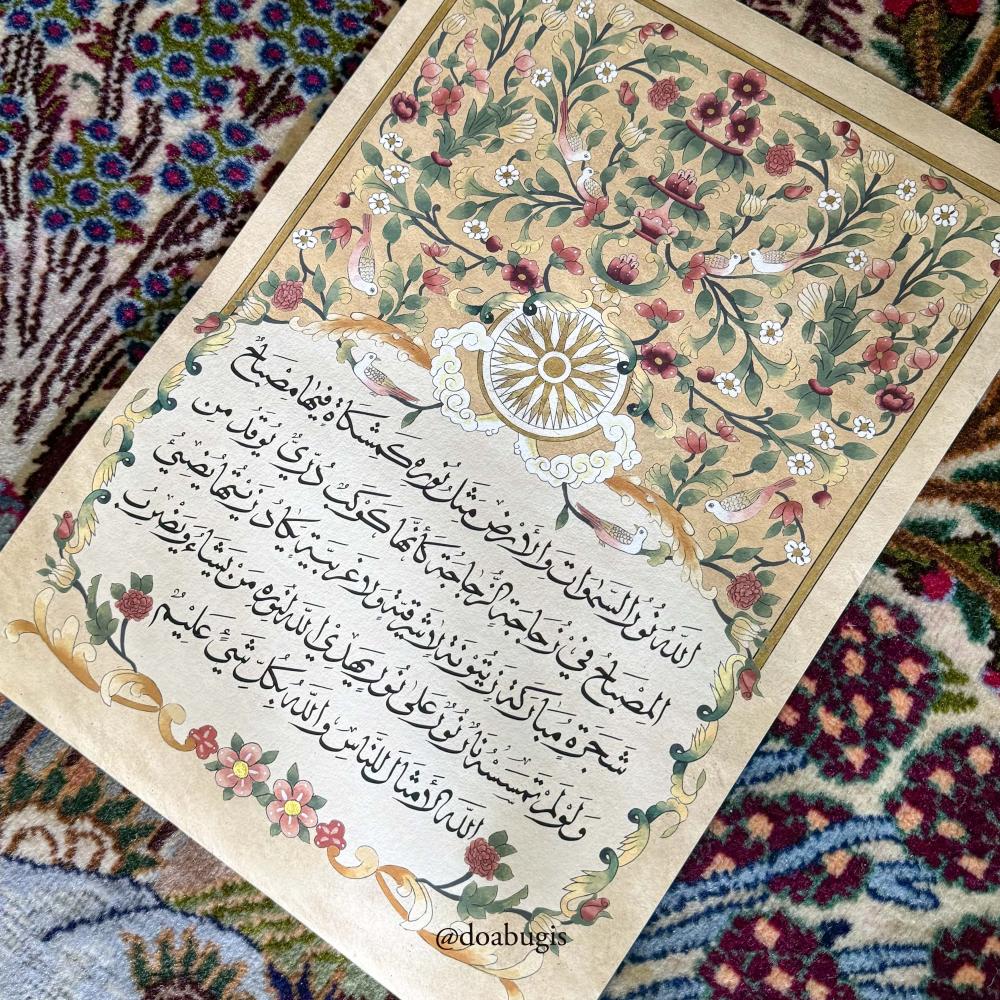 اللَّهُ نُورُ السَّمٰوَاتِ وَالْأَرْضِ مَثَلُ نُورِهِ كَمِشْكَاةٍ فِيهَا مِصْبَاحٌ
الْمِصْبَاحُ فِي زُجَاجَةٍ الزُّجَاجَةُ كَأَنَّهَا كَوْكَبٌ دُرِّيٌّ يُوقَدُ مِن
شَجَرَةٍ مُبَارَكَةٍ زَيْتُونَةٍ لَا شَرْقِيَّةٍ وَلَا غَرْبِيَّةٍ يَكَادُ زَيْتُهَا يُضِيءُ
وَلَوْ لَمْ تَمْسَسْهُ نَارٌ نُورٌ عَلَىٰ نُورٍ يَهْدِي اللَّهُ لِنُورِهِ مَنْ يَشَاءُ وَيَضْرِبُ
اللَّهُ الْأَمْثَالَ لِلنَّاسِ وَاللَّهُ بِكُلِّ شَيْءٍ عَلِيمٌ
@doabugis